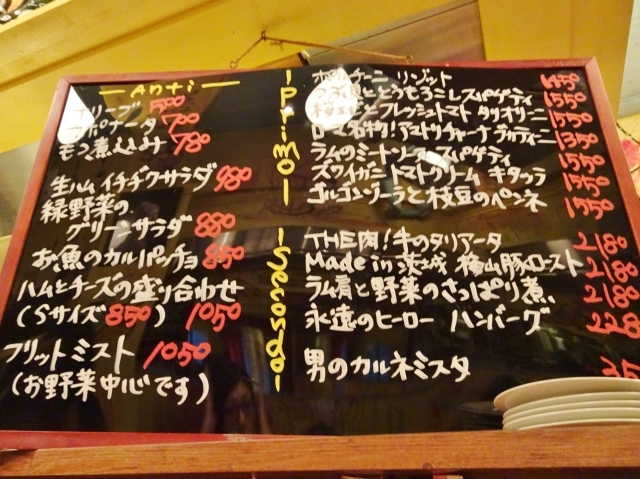 Anti
オリーブ 500
カポナータ 700
モツ煮込み 780
生ハム イチヂクサラダ 980
緑野菜の
グリーンサラダ 880
お魚のカルパッチョ 850
ハムとチーズの盛り合わせ
(Sサイズ 850) 1050
フリットミスト 1050
(お野菜中心です)
Primo
ポルチーニ リゾット 1450
つぶ貝ととうもろこし スパゲティ 1550
桜エビとフレッシュトマト タリオリーニ 1550
ローマ名物!アマトリチャーナ ブカティーニ 1350
ラムのミートソース スパゲティ 1550
ズワイガニ トマトクリーム キタッラ 1350
ゴルゴンゾーラと枝豆のペンネ 1350
Secondo
THE肉!牛のタリアータ 2180
Made in 茨城 梅山豚ロースト 2180
ラム肩と野菜のさっぱり煮 2180
永遠のヒーロー ハンバーグ 2280
男のカルネミスタ